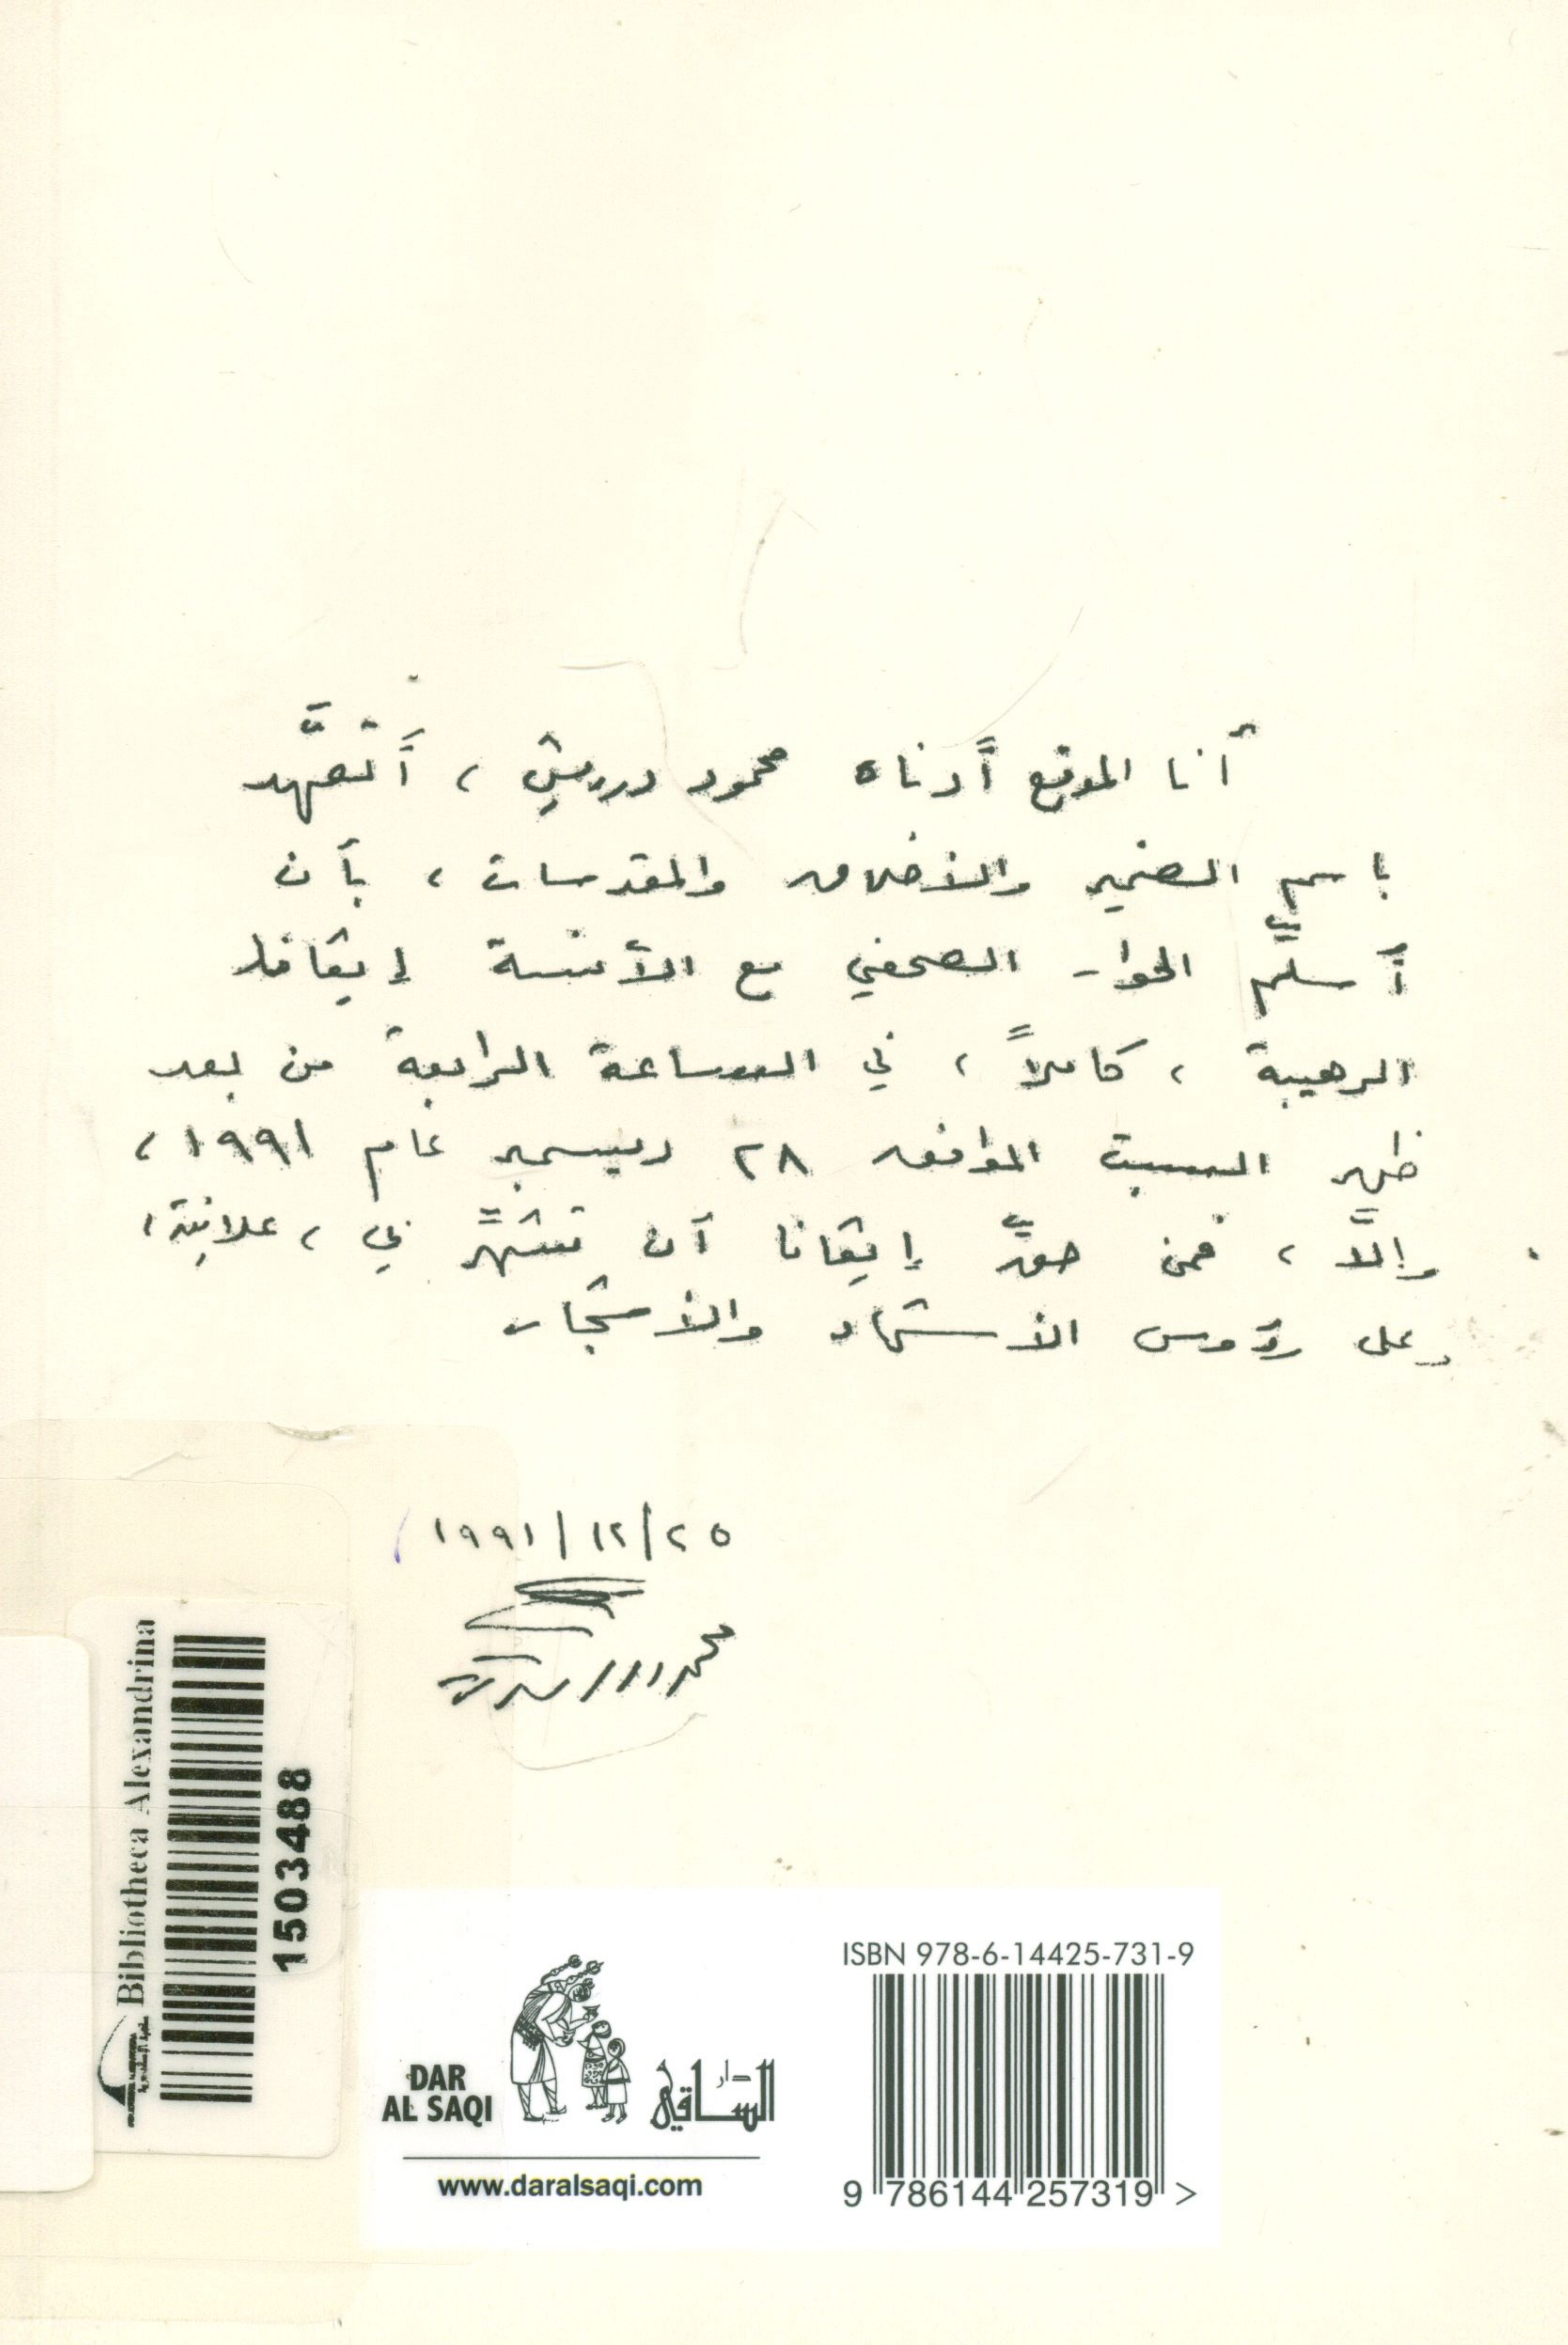 أنا الموقع أدناه محمود درويش، أتعهَّد
باسم الضمير والأخلاق والمقدسات، بأن
أسلِّم الحوار الصحفي مع الآنسة إيڤانا
الرهيبة، كاملاً، في الساعة الرابعة من بعد
ظهر السبت الموافق ٢٨ ديسمبر عام ١٩٩١،
وإلَّا، فمن حقِّ إيڤانا أن تشهِّر بي، علانيةً،
وعلى رؤوس الأشهاد والأشجار
٢٥/١٢/١٩٩١
محمود درويش
Bibliotheca Alexandrina
1503488
ISBN 978-6-14425-731-9
DAR
AL SAQI
دار
الساقي
www.daralsaqi.com
9 786144 257319 >